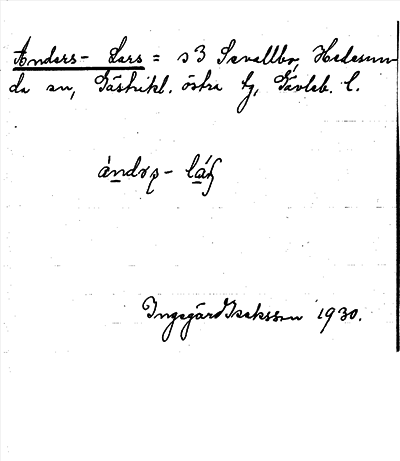 Anders- Lars = s3 Sevallbo, Hedesun-
da sn, Gästrikl. östra tg, Gävleb. l.
ándəʂ- láʂ
Ingegärd Isaksson 1930.